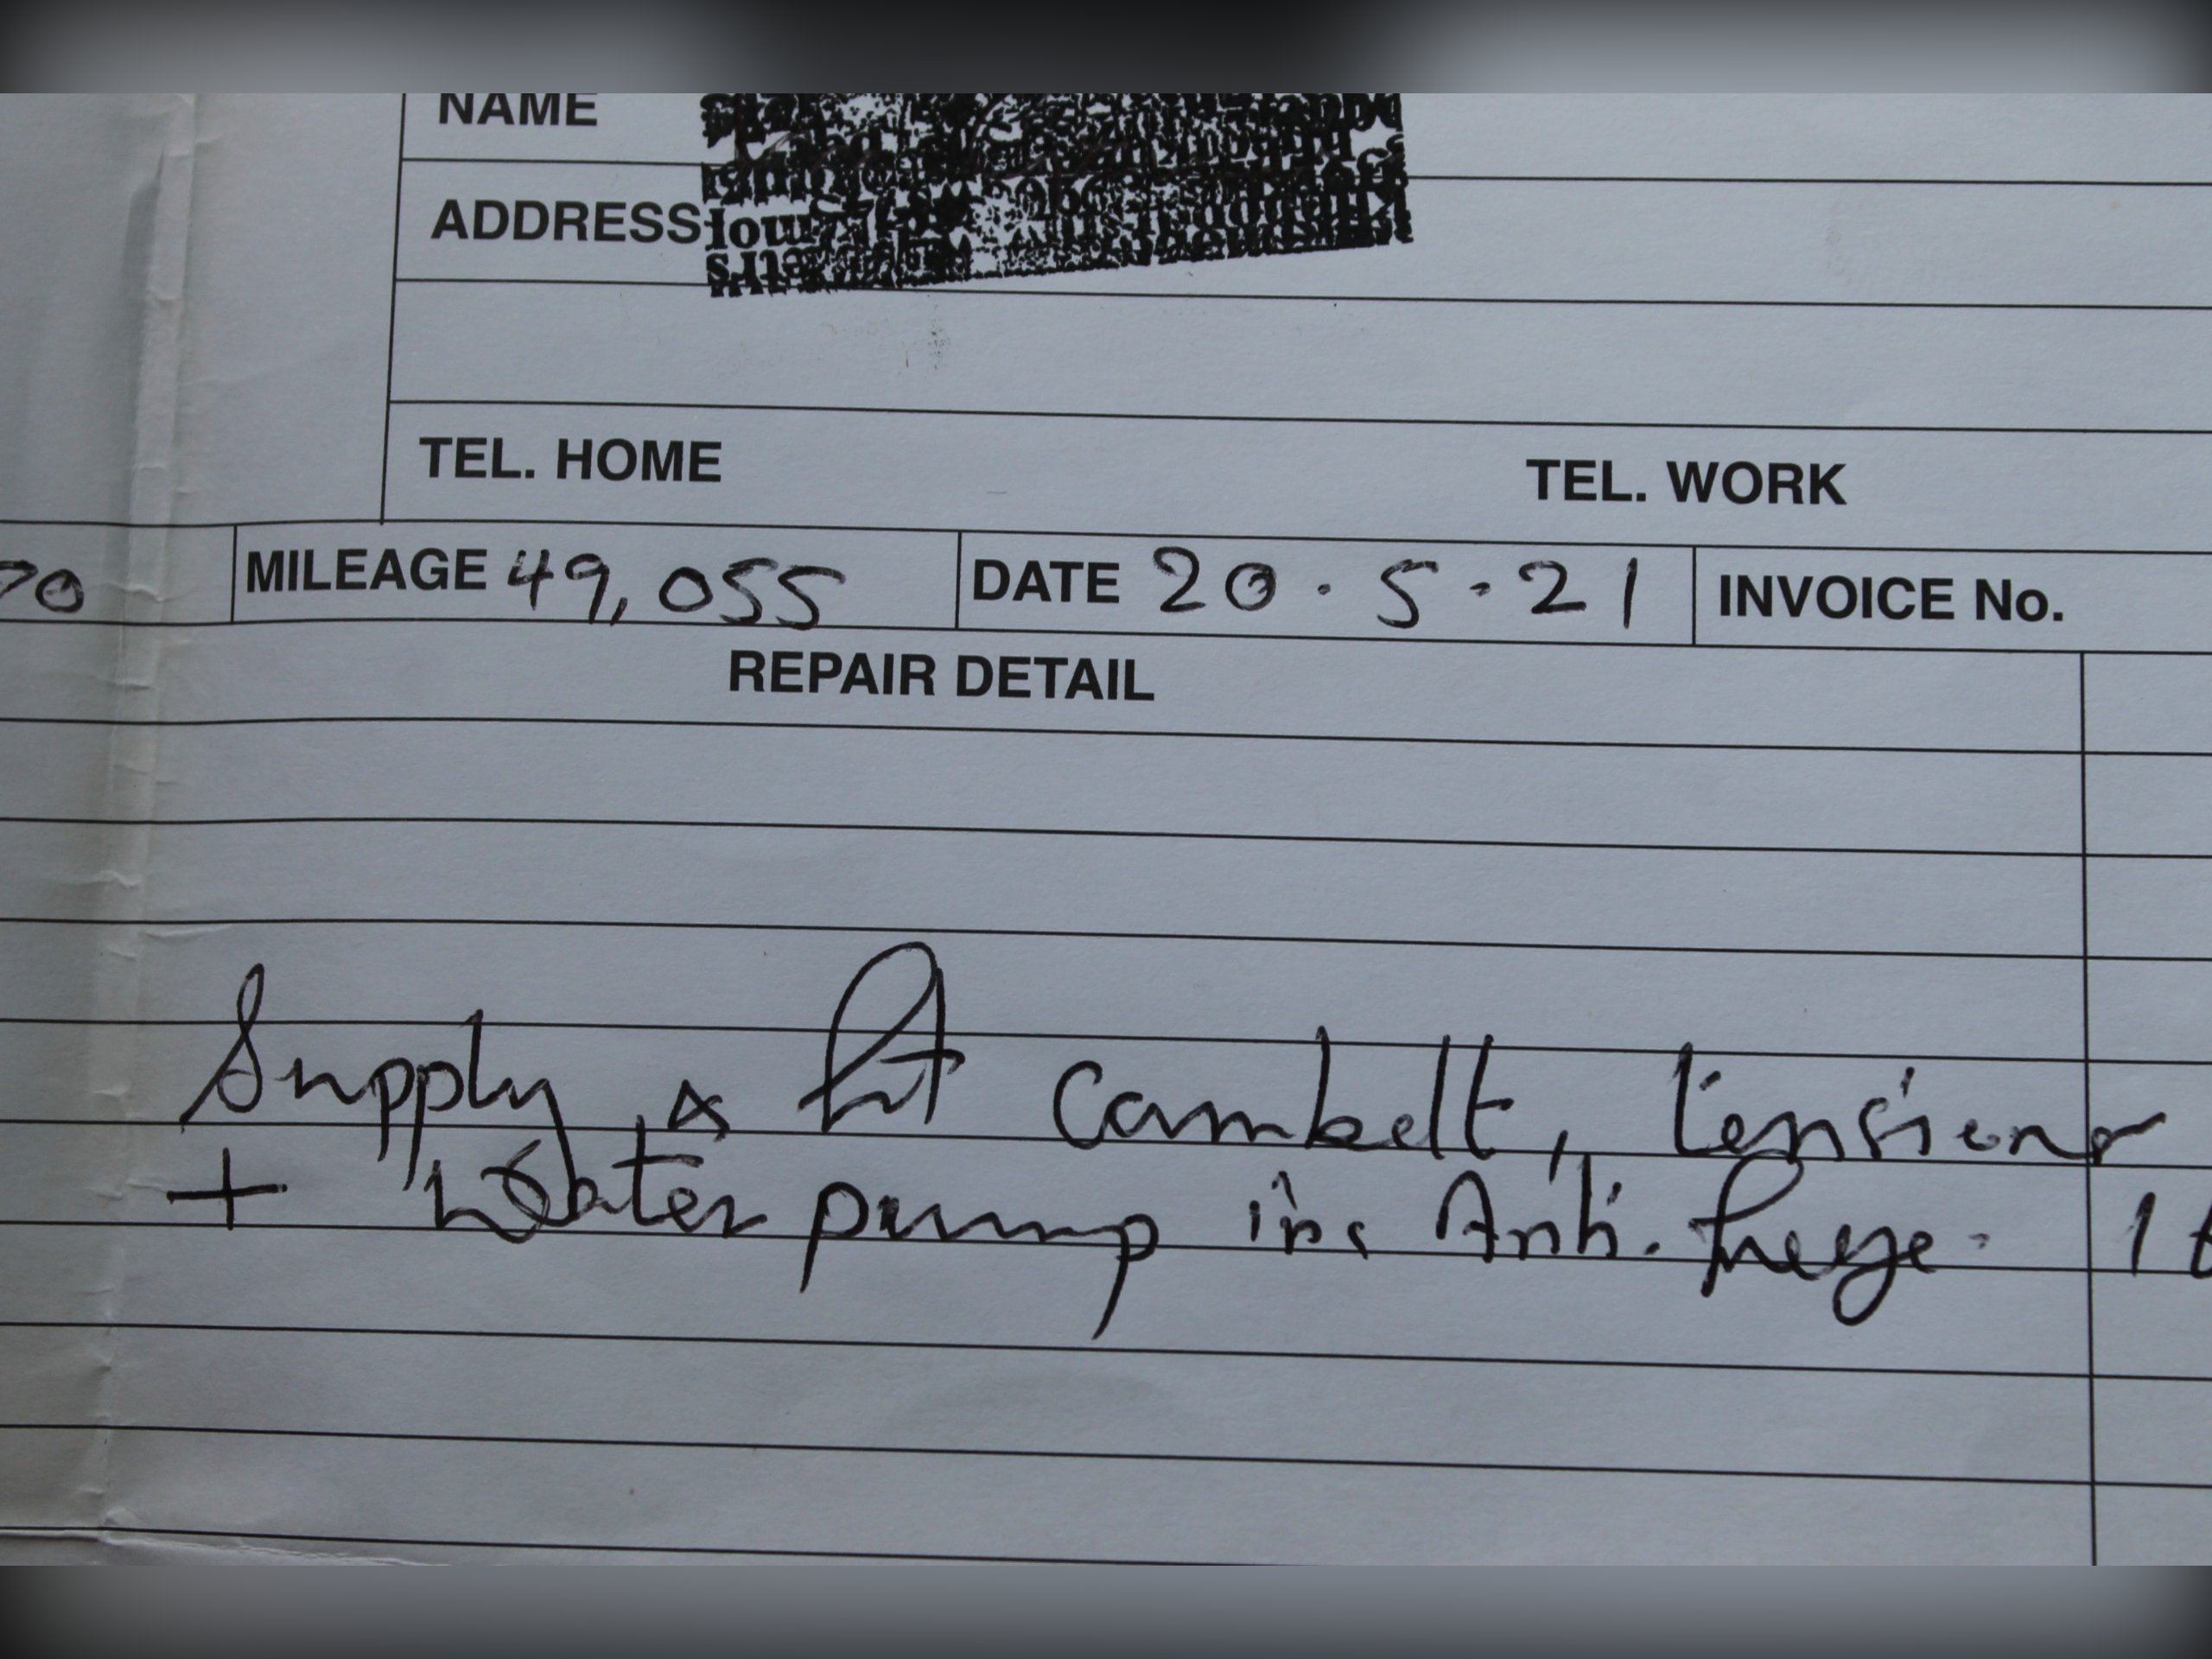 NAME
ADDRESS
TEL. HOME TEL. WORK
70 MILEAGE 49,055 DATE 20.5.21 INVOICE No.
REPAIR DETAIL
Supply & fit Cambelt, tensioner
+ Water pump inc Anti. freeze. 1